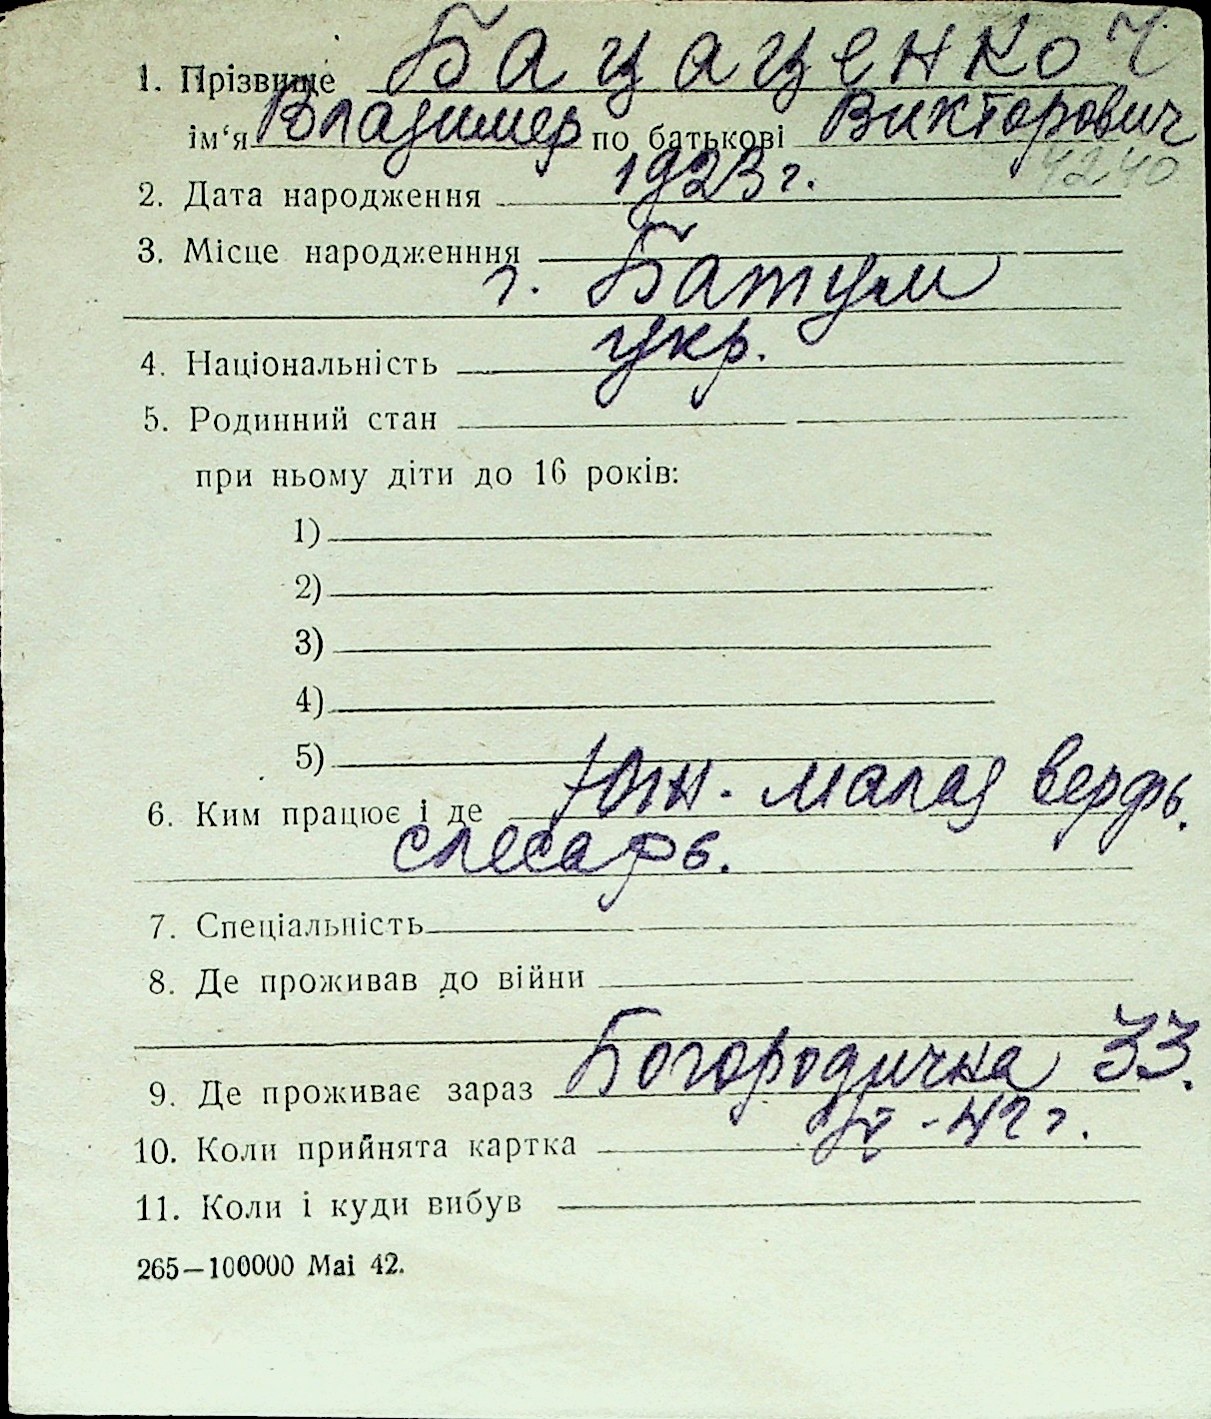 1. Прізвище Бацаценко Ч
ім‘я Владимер по батькові Викторович
4240
2. Дата народження 1923 г.
3. Місце народженння
г. Батум
4. Національність укр.
5. Родинний стан
при ньому діти до 16 років:
1)
2)
3)
4)
5)
6. Ким працює і де Южн. малая верфь.
слесарь.
7. Спеціальність
8. Де проживав до війни
9. Де проживає зараз Богородична 33.
10. Коли прийнята картка - 42 г.
11. Коли і куди вибув
265—100000 Mai 42.